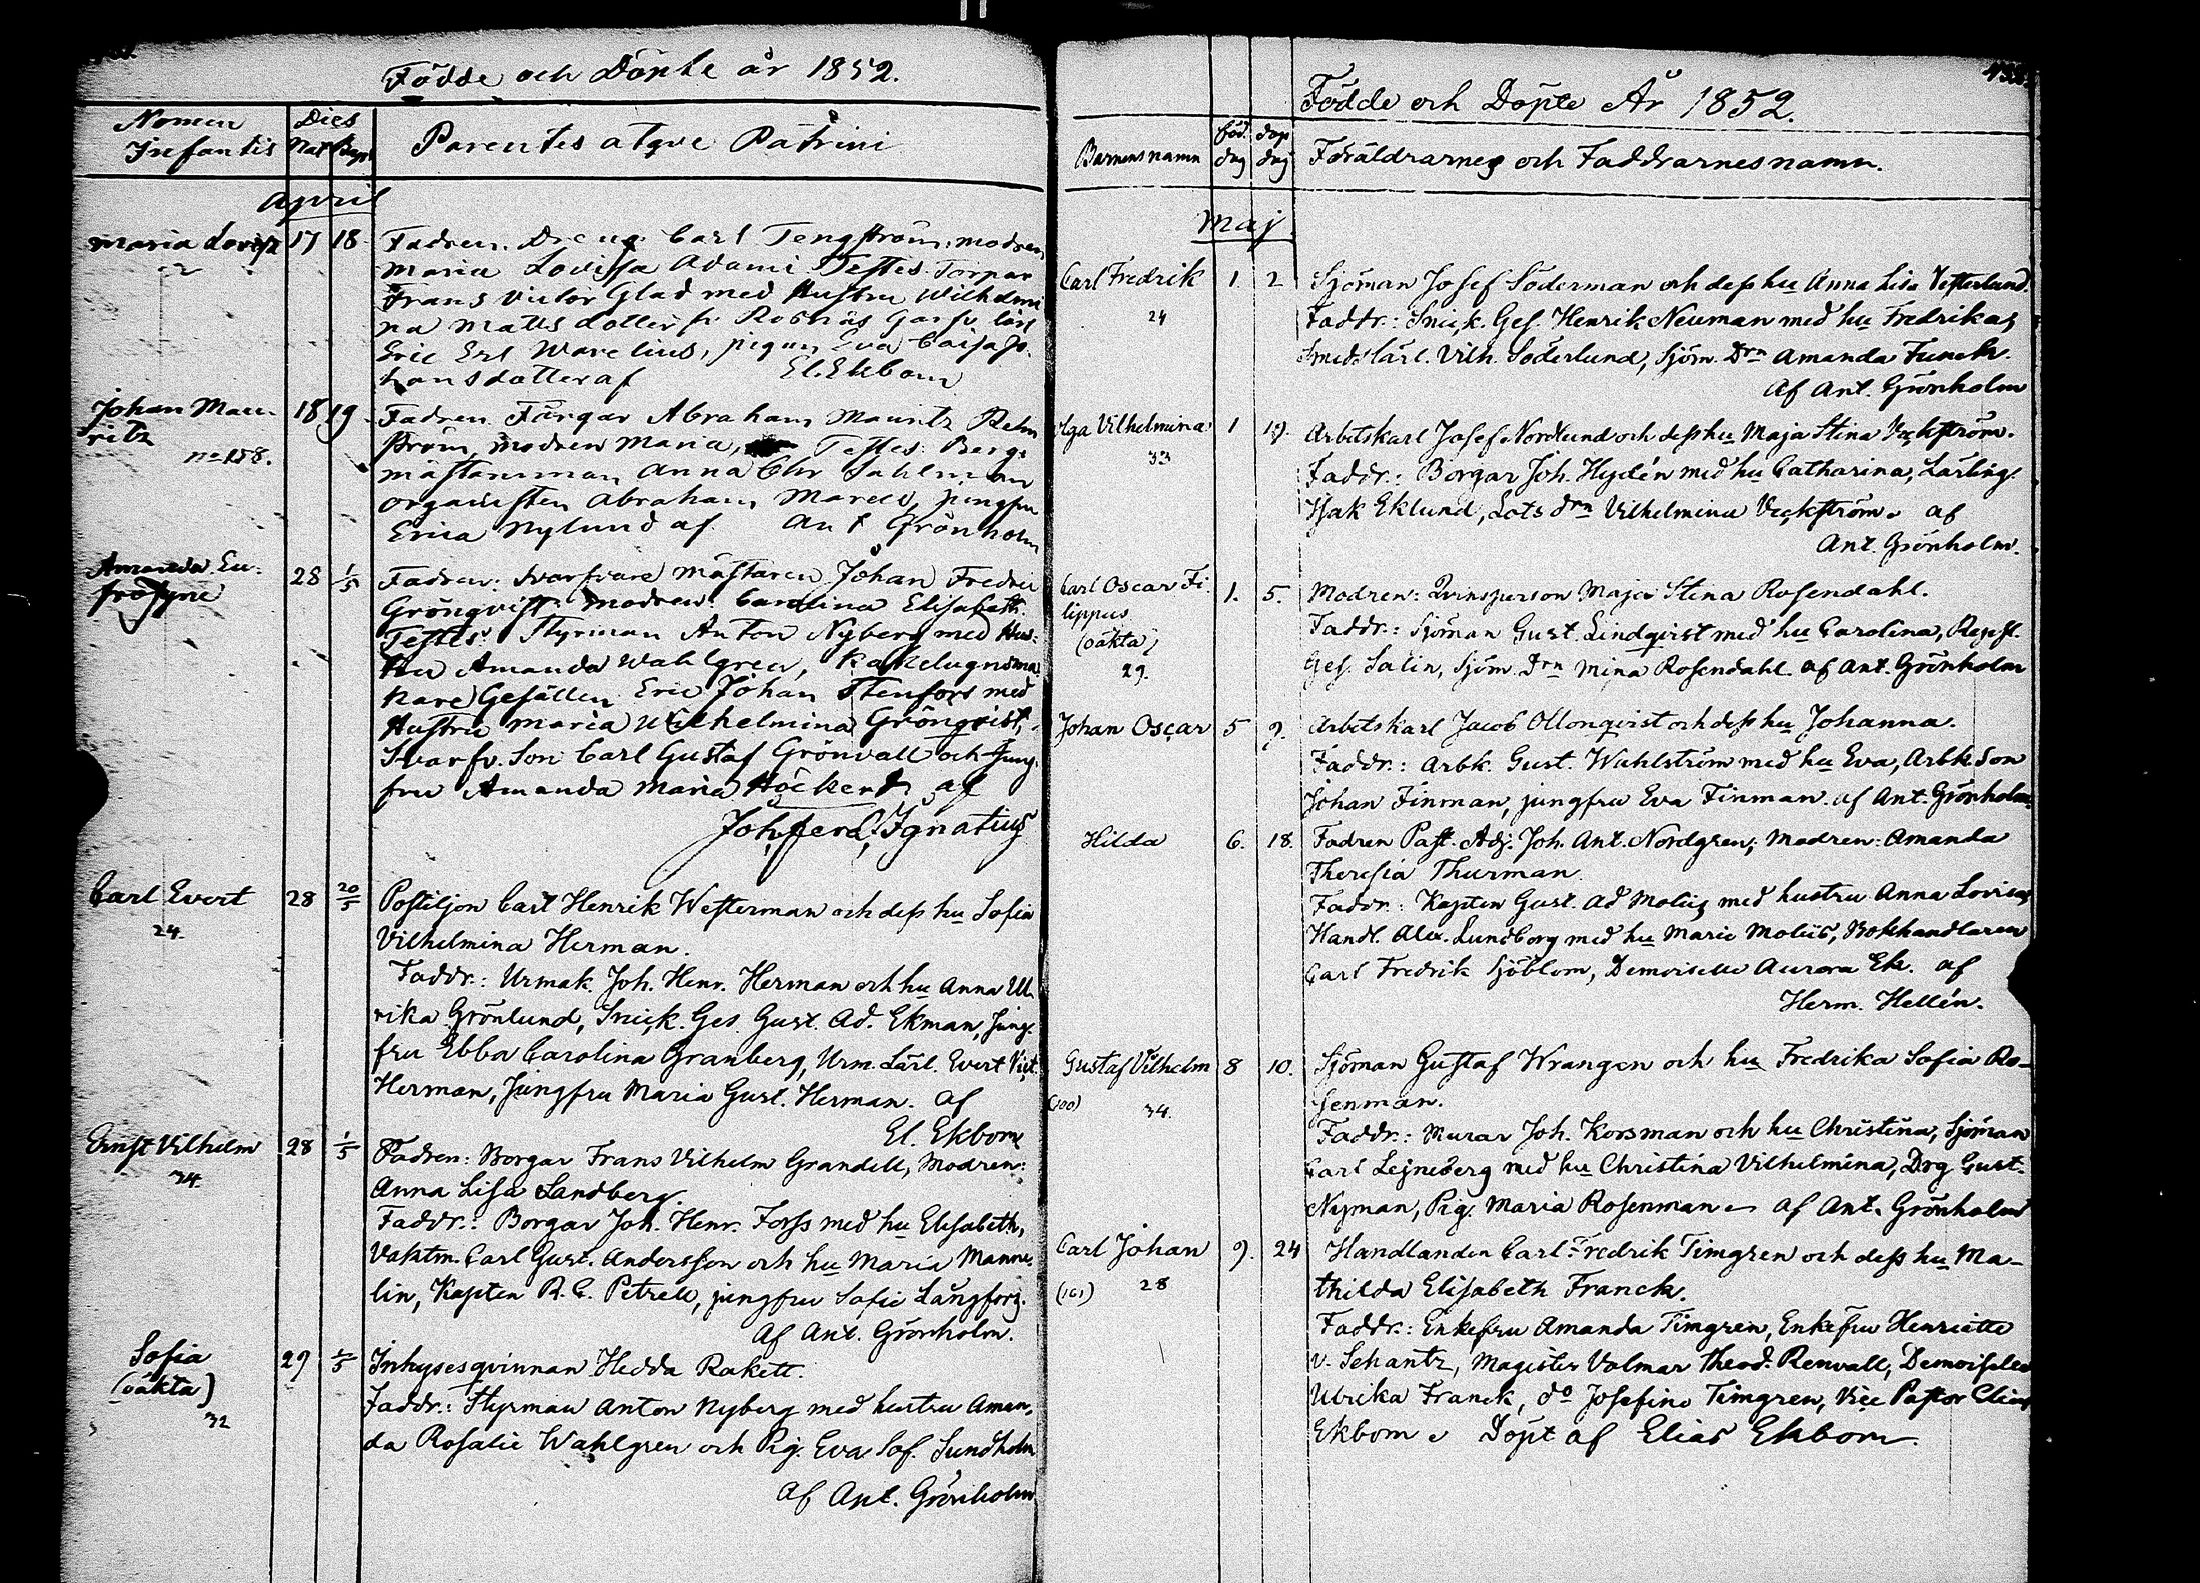 Födde och Döpte år 1852.
Nomen Infantis
Dies
Nat Bapt
Parentes atqve Patrini
April
Maria Lovisa 17 18 Fadren. Dreng Carl Tengström, modren
Maria Lovissa Adami Testes. Torpar
Frans Victor Glad med Hustru Wilhelmi
na Mattsdotter fr. Rosnäs Garfv. lärl
Eric Ert Warelius, pigan Eva Caisa Jo-
hansdotter af El. Ekbom
Johan Mau-
ritz
no 158.
18 19 Fadren Färgar Abraham Mauritz Rehn
ström, modren Maria, Testes. Berg-
mästarinnan Anna Chr Sahlman
organisten Abraham Marell, jungfru
Erica Nylund af Ant Grönholm
Amanda Eu-
frosyne
28 1/5 Fadren: Svarfvare mästaren Johan Fredric
Grönqvist: modren: Carolina Elisabeth.
Testes: Styrman Anton Nyberg med Hus-
tru Amanda Wahlgren, Kakelugnsma
kare Gesällen Eric Johan Stenfors med
Hustru Maria Wilhelmina Grönqvist,
Svarfv. Son Carl Gustaf Grönvall och Jung-
fru Amanda Maria Höckert af
Joh. Ferd. Ignatius
Carl Evert
24.
28 20/5 Postiljon Carl Henrik Westerman och dess hu Sofia
Vilhelmina Herman.
Faddr.: Urmak. Joh. Henr. Herman och hu Anna Ul
rika Grönlund, Snick. Ges. Gust. Ad. Ekman, Jung-
fru Ebba Carolina Granberg, Urm. Lärl. Evert Vict.
Herman, Jungfru Maria Gust. Herman. af
El. Ekbom
Ernst Vilhelm
34.
28 1/5 Fadren: Borgar Frans Vilhelm Grandell, Modren:
Anna Lisa Sandberg.
Faddr.: Borgar Joh. Henr. Forss med hu Elisabeth,
Vaktm. Carl Gust. Andersson och hu Maria Manne-
lin, Kapten R. E. Petrell, jungfru Sofie Långfors.
Af Ant. Grönholm.
Sofia
(oäkta)
32
29 1/5 Inhysesqvinnan Hedda Rakett.
Faddr.: Styrman Anton Nyberg med hustru Aman-
da Rosalie Wahlgren och Pig. Eva Sof. Sundholm
af Ant. Grönholm
Födde och Döpte År 1852.
Barnens namn
föd. dag
dop dag
Föräldrarnes och Faddrarnes namn.
Maj
Carl Fredrik 1. 2 Sjöman Josef Söderman och dess hu Anna Lisa Vesterlund.
24
Faddr.: Snick. Ges. Henrik Neuman med hu Fredrika,
Smeds lärl. Vilh. Söderlund, Sjöm. Drn Amanda Funck.
af Ant. Grönholm
Olga Vilhelmina 1 19. Arbetskarl Josef Nordlund och dess hu Maja Stina Veckström.
33
Faddr.: Borgar Joh. Hydén med hu Catharina, Lärling.
Isak Eklund, Lots drn Vilhelmina Veckström. af
Ant. Grönholm.
Carl Oscar Fi-
lippus
(oäkta)
29.
1. 5. Modren: Qvinsperson Maja Stina Rosendahl.
Faddr.: Sjöman Gust. Lindqvist med hu Carolina, Repsl.
Ges. Salin, Sjöm. Drn Mina Rosendahl. af Ant. Grönholm
Johan Oscar 5 9. Arbetskarl Jacob Ollonqvist och dess hu Johanna.
Faddr.: Arbk. Gust. Wahlström med hu Eva, Arbk. Son
Johan Finman, jungfru Eva Finman. af Ant. Grönholm.
Hilda 6. 18. Fadren Past. Adj. Joh. Ant. Nordgren, Modren: Amanda
Theresia Thurman.
Faddr.: Kapten Gust. Ad Molis med hustru Anna Lovisa,
Handl. Alex. Lundborg med hu Marie Moliis, Bokhandlaren
Carl Fredrik Sjöblom, Demoiselle Aurora Ek. af
Herm. Hellén.
Gustaf Vilhelm 8 10. Sjöman Gustaf Wrangen och hu Fredrika Sofia Ro-
(100) 34.
senman.
Faddr.: Murar Joh. Korsman och hu Christina, Sjöman
Carl Lejneberg med hu Christina Vilhelmina, Drg Gust.
Nyman, Pig. Maria Rosenman af Ant. Grönholm
Carl Johan 9. 24 Handlanden Carl Fredrik Timgren och dess hu Ma-
(101) 28
thilda Elisabeth Franck.
Faddr.: Enkefru Amanda Timgren, Enkefru Henriette
v. Schantz, Magister Valmar Theod. Renvall, Demoiselle
Ulrika Franck, do Josefine Timgren, Vice Pastor Elias
Ekbom. Döpt af Elias Ekbom.